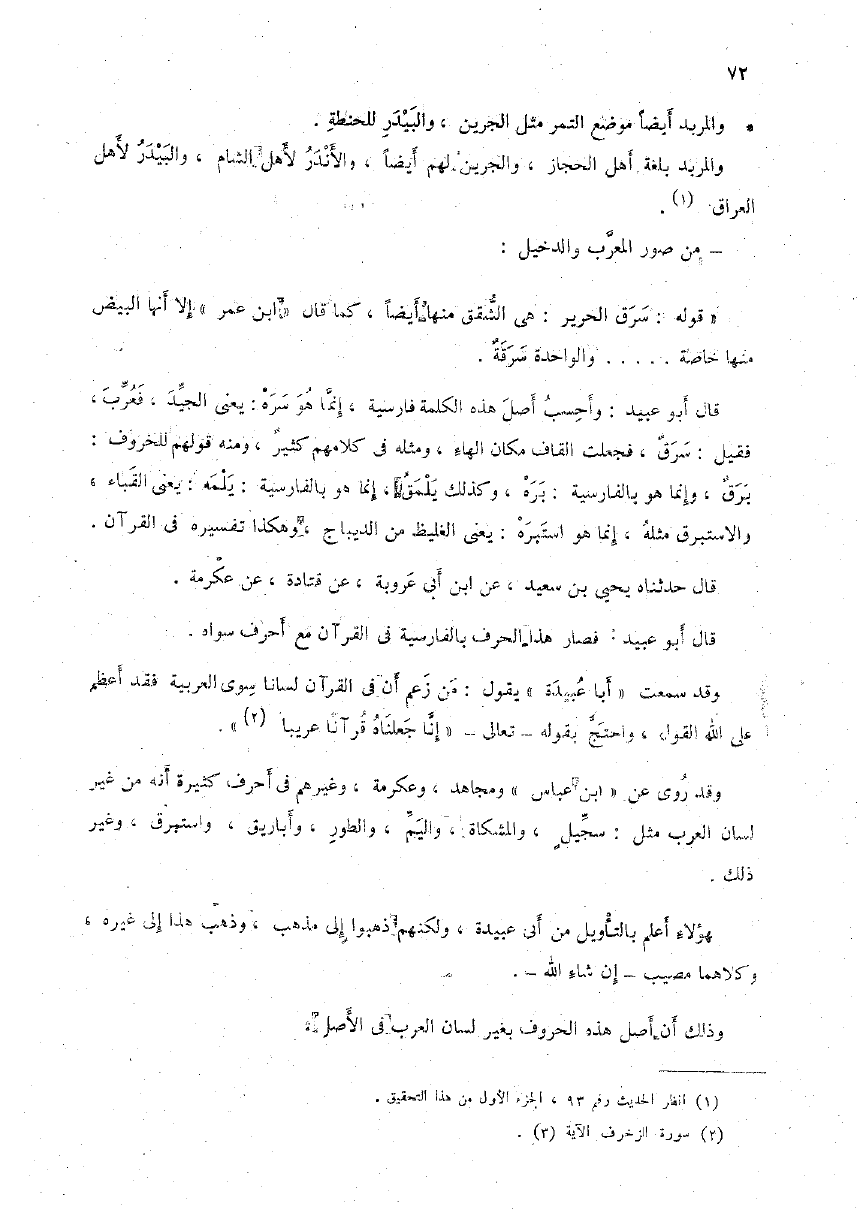 ٧٢
* والمربد أيضاً موضع التمر مثل الجرين ، والبَيْدَرِ للحنطةِ .
والمربد بلغة أهل الحجاز ، والجرين لهم أيضاً ، والأَنْدَرُ لأَهل الشام ، والبَيْدَرُ لأَهل
العراق (١) .
– من صور المعرَّب والدخيل :
« قوله : سَرَق الحرير : هى الشُّقق منها أَيضاً ، كما قال « ابن عمر » إلا أَنها البيض
منها خاصّة . . . . . والواحدة سَرَقَةٌ .
قال أَبو عبيد : وأَحسِبُ أَصلَ هذه الكلمة فارسية ، إِنَّما هُوَ سَرَهْ : يعنى الجيِّدَ ، فَعُرِّبَ ،
فقيل : سَرَقٌ ، فجعلت القاف مكان الهاءِ ، ومثله فى كلامهم كثيرٌ ، ومنه قولهم للخروف :
بَرَقٌ ، وإِنما هو بالفارسية : بَرَهْ ، وكذلك يَلْمَقُ ، إِنما هو بالفارسية : يَلْمَه : يعنى القَباء ،
والاستبرق مثلهُ ، إِنما هو استَبرَهْ : يعنى الغليظ من الديباج ، وهكذا تفسيره فى القرآن .
قال حدثناه يحيى بن سعيد ، عن ابن أَبى عَروبة ، عن قتادة ، عن عكْرمة .
قال أَبو عبيد : فصار هذا الحرف بالفارسية فى القرآن مع أَحرف سواه .
وقد سمعت « أَبا عُبيدَة » يقول : مَن زَعم أَن فى القرآن لسانا سِوى العربية فقد أَعظم
على الله القول ، واحتَجَّ بقوله – تعالى – « إِنَّا جَعلنَاهُ قُرآنًا عربيا (٢) » .
وقد رُوى عن « ابن عباس » ومجاهد ، وعكرمة ، وغيرهم فى أَحرف كثيرة أَنه من غير
لسان العرب مثل : سجِّيلٍ ، والمشكاة ، واليَمِّ ، والطورِ ، وأَباريق ، واستبرق ، وغير
ذلك .
هؤلاءِ أَعلم بالتأْويل من أَبى عبيدة ، ولكنهم ذهبوا إلى مذهب ، وذهب هذا إلى غيره ،
وكلاهما مصيب – إن شاءَ الله – .
وذلك أَن أَصل هذه الحروف بغير لسان العرب فى الأَصل
(١) انظر الحديث رقم ٩٣ ، الجزء الأول من هذا التحقيق .
(٢) سورة الزخرف الآية (٣) .